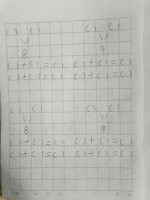 ( ) ( ) ( ) ( )
\/ \/
8 9
( ) + ( ) = ( ) ( ) + ( ) = ( )
( ) + ( ) = ( ) ( ) + ( ) = ( )
( ) ( ) ( ) ( )
\/ \/
8 9
( ) + ( ) = ( ) ( ) + ( ) = ( )
( ) + ( ) = ( ) ( ) + ( ) = ( )